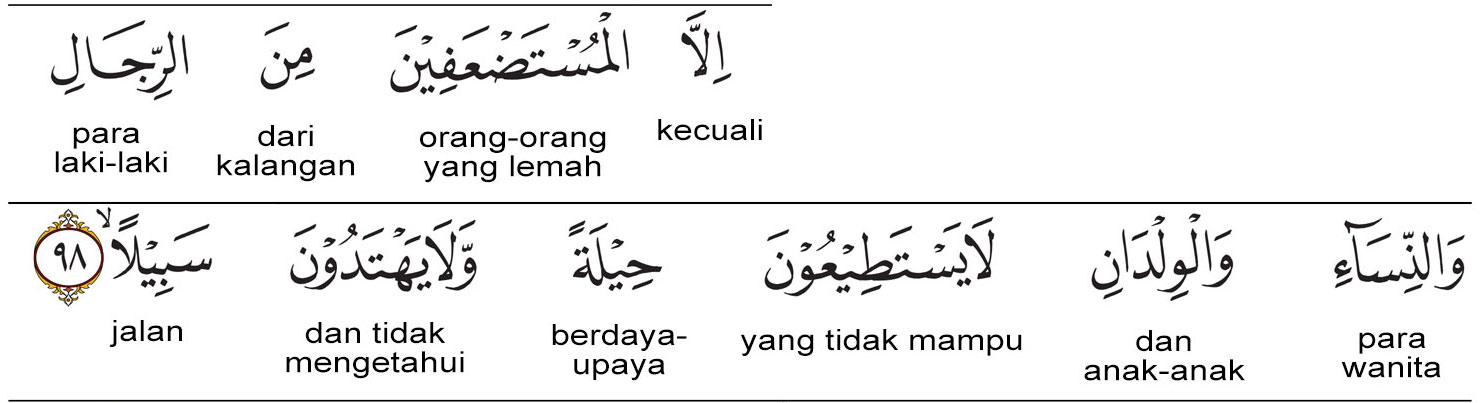 اِلَّا الْمُسْتَضْعَفِيْنَ مِنَ الرِّجَالِ
kecuali orang-orang yang lemah dari kalangan para laki-laki
وَالنِّسَاۤءِ وَالْوِلْدَانِ لَا يَسْتَطِيْعُوْنَ حِيْلَةً وَّلَا يَهْتَدُوْنَ سَبِيْلًاۙ ٩٨
para wanita dan anak-anak yang tidak mampu berdaya-upaya dan tidak mengetahui jalan